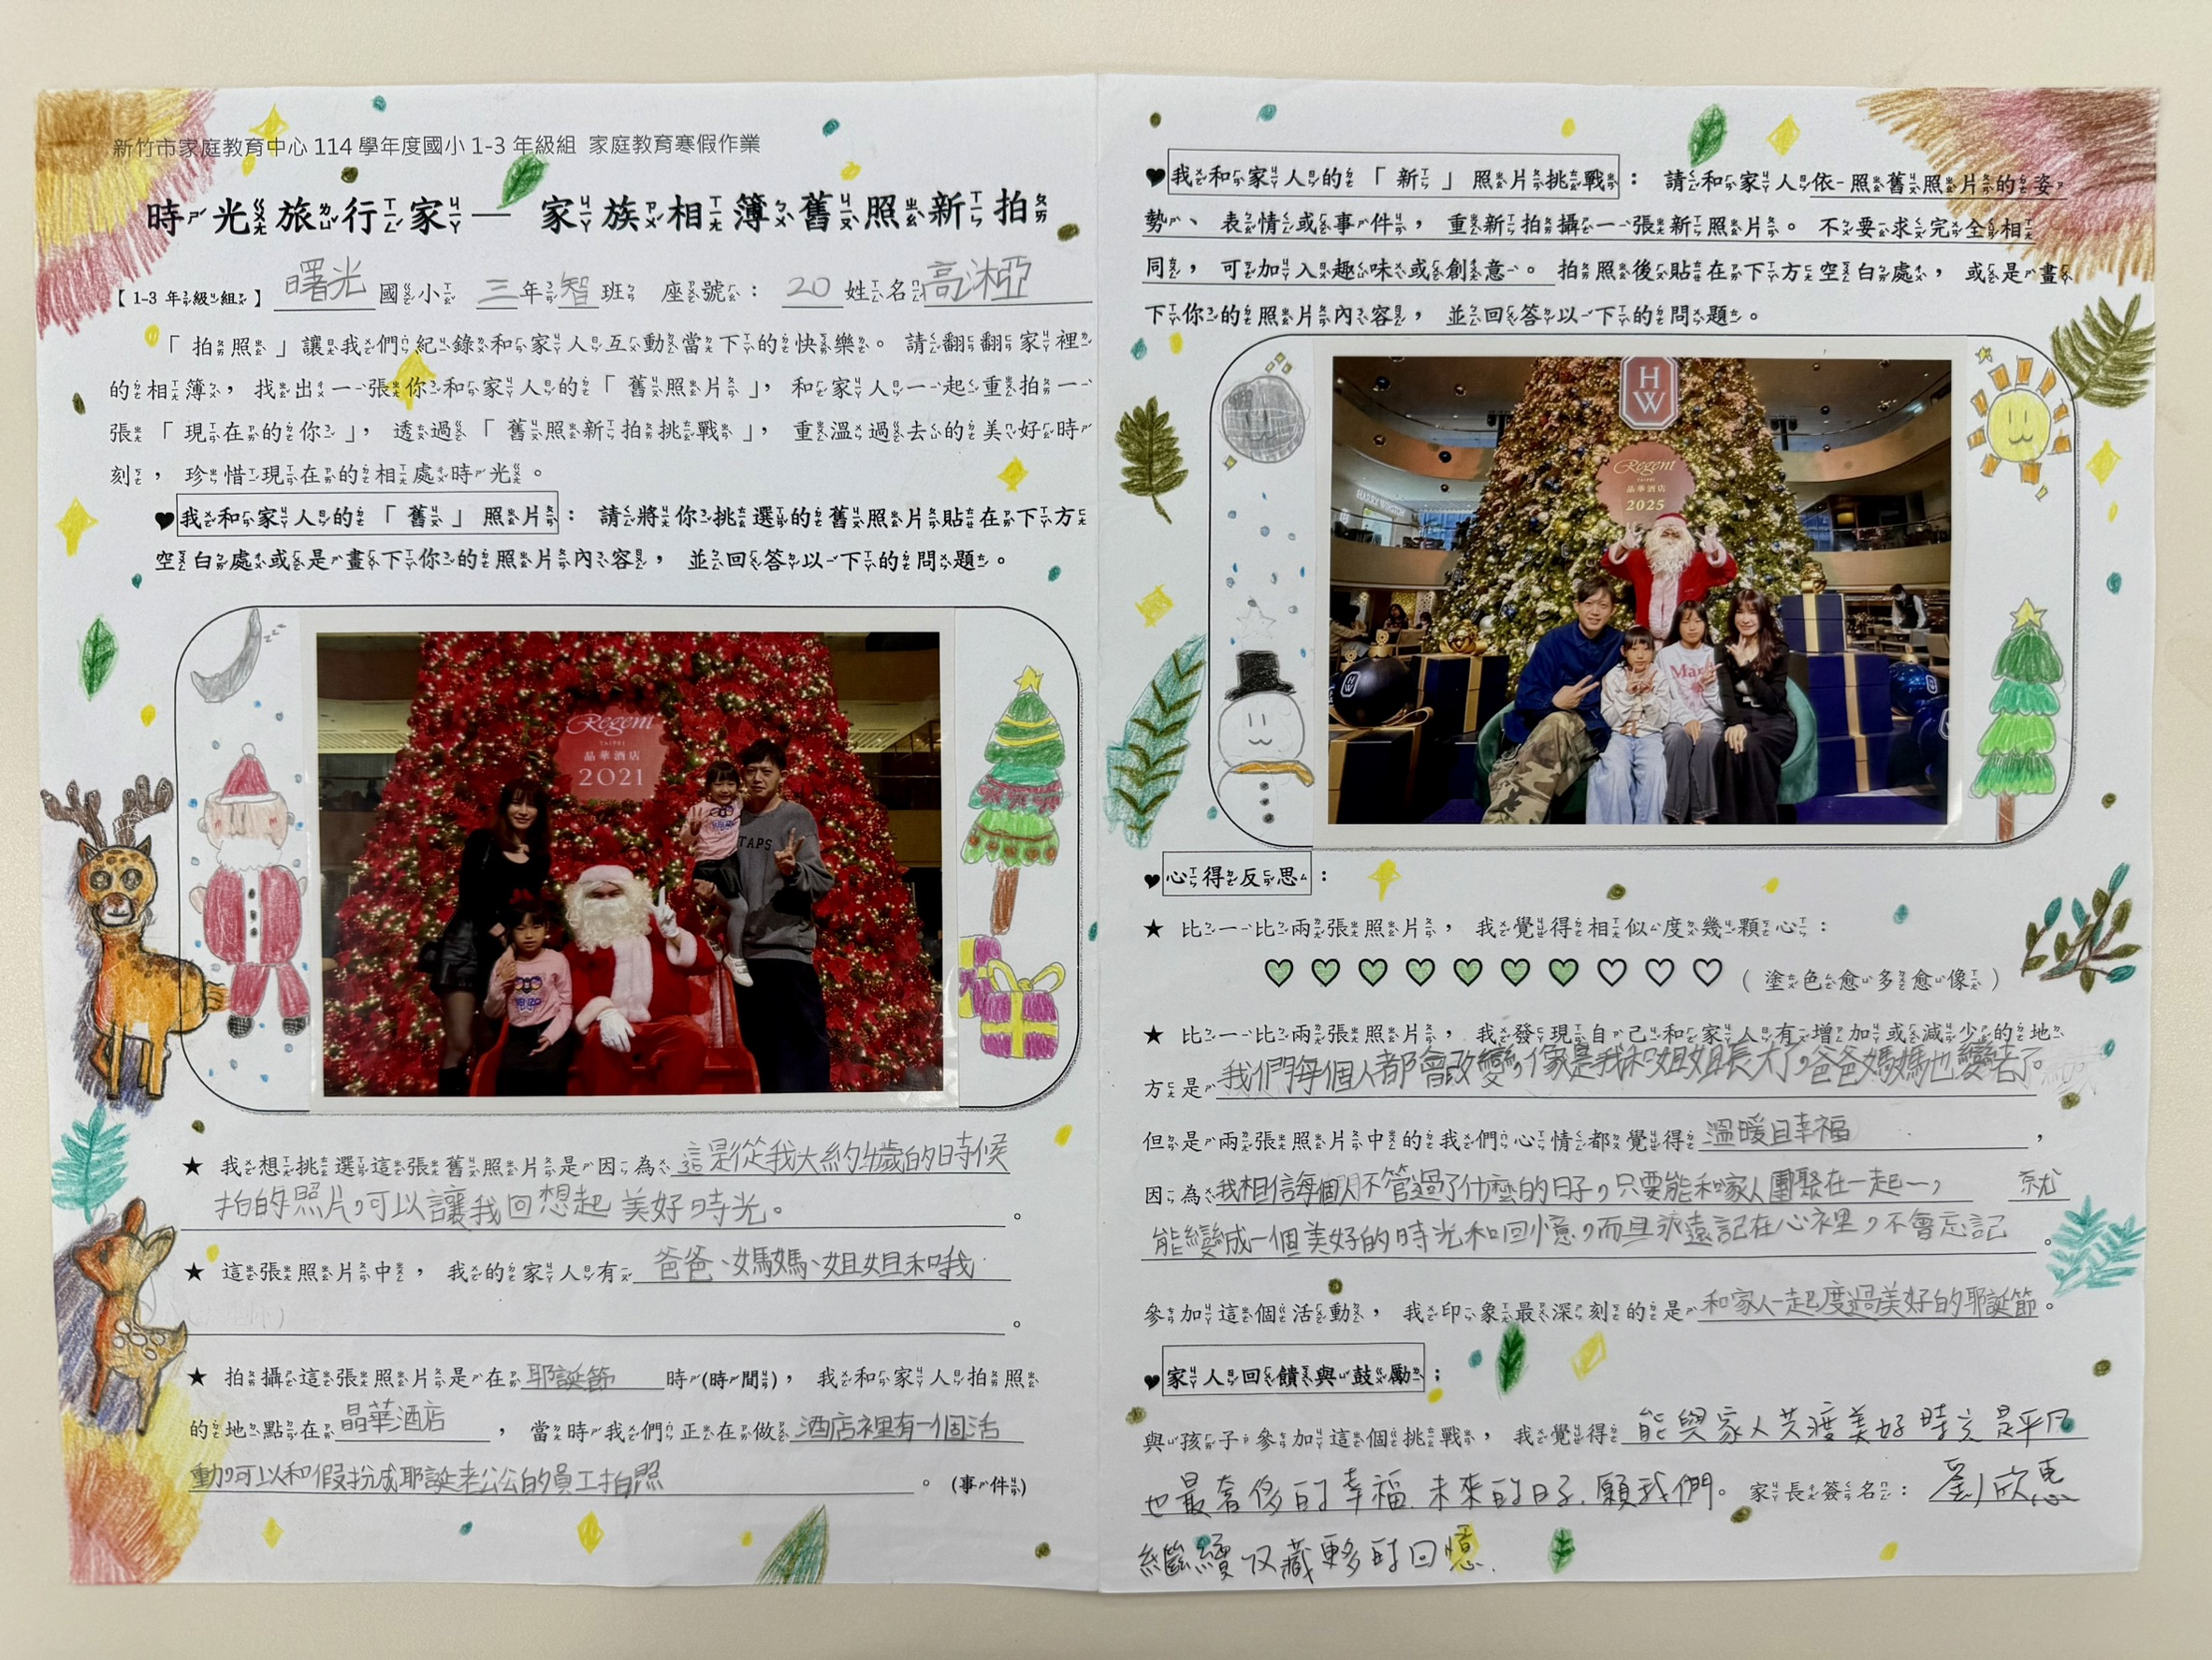 新竹市家庭教育中心 114 學年度國小 1-3 年級組 家庭教育寒假作業
時光旅行家— 家族相簿舊照新拍
【1-3 年級組】 曙光 國小 三 年 智 班 座號： 20 姓名 高湘椏
「拍照」讓我們紀錄和家人互動當下的快樂。請翻翻家裡
的相簿，找出一張你和家人的「舊照片」，和家人一起重拍一
張「現在的你」，透過「舊照新拍挑戰」，重溫過去的美好時
刻，珍惜現在的相處時光。
♥我和家人的「舊」照片：請將你挑選的舊照片貼在下方
空白處或是畫下你的照片內容，並回答以下的問題。
Regent
TAIPEI
晶華酒店
2021
TAPS
★ 我想挑選這張舊照片是因為 這是從我大約4歲的時候
拍的照片，可以讓我回想起美好時光。
★ 這張照片中，我的家人有 爸爸、媽媽、姐姐和我
。
★ 拍攝這張照片是在 耶誕節 時(時間)，我和家人拍照
的地點在 晶華酒店 ，當時我們正在做 酒店裡有一個活
動，可以和假扮成耶誕老公公的員工拍照 。(事件)
♥我和家人的「新」照片挑戰：請和家人依照舊照片的姿
勢、表情或事件，重新拍攝一張新照片。不要求完全相
同，可加入趣味或創意。拍照後貼在下方空白處，或是畫
下你的照片內容，並回答以下的問題。
H
W
Regent
TAIPEI
晶華酒店
2025
HARRY WINSTON
♥心得反思：
★ 比一比兩張照片，我覺得相似度幾顆心：
♥ ♥ ♥ ♥ ♥ ♥ ♥ ♡ ♡ ♡ （塗色愈多愈像）
★ 比一比兩張照片，我發現自己和家人有增加或減少的地
方是 我們每個人都會改變，像是我和姐姐長大了，爸爸媽媽也變老了。
但是兩張照片中的我們心情都覺得 溫暖且幸福 ，
因為 我相信每個人不管過了什麼的日子，只要能和家人團聚在一起， 就
能變成一個美好的時光和回憶，而且永遠記在心裡，不會忘記 。
參加這個活動，我印象最深刻的是 和家人一起度過美好的耶誕節。
♥家人回饋與鼓勵；
與孩子參加這個挑戰，我覺得 能與家人共渡美好時光是平凡
也最奢侈的幸福.未來的日子.願我們。家長簽名： 劉欣惠
繼續收藏更多的回憶.